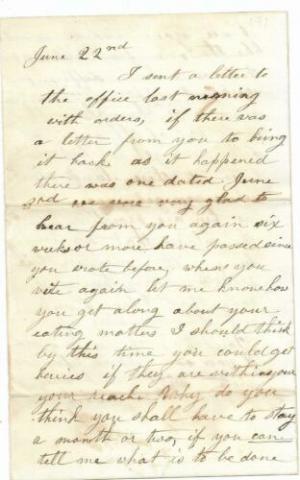 June 22nd
I sent a letter to
the office last morning
with orders, if there was
a letter from you to bring
it back as it happened
there was one dated June
3rd we were very glad to
hear from you again six
weeks or more have passed since
you wrote before, when you
write again let me know how
you get along about your
eating matters I should think
by this time you could get
berries if they are within your
your reach. Why do you
think you shall have to stay
a month or two, if you can
tell me what is to be done